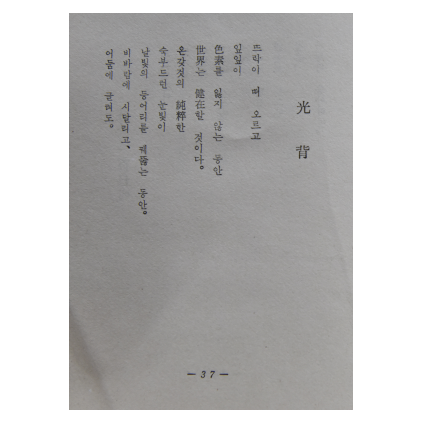 光背
뜨락이 떠 오르고
잎잎이
色素를 잃지 않는 동안
世界는 健在할 것이다。
온갖것의 純粹한
숙부드런 눈빛이
날빛의 등어리를 꿰뚫는 동안。
비바람에 시달리고、
어둠에 물려도。
— 37 —